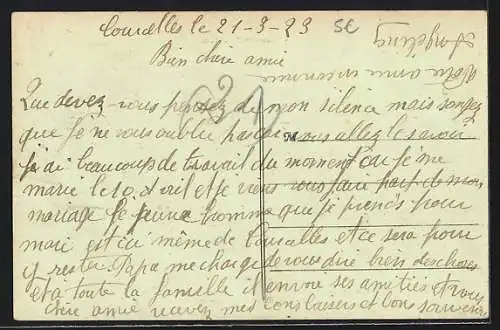 Courcelles le 21-3-23
Bien chère amie
Que devez-vous pensez de mon silence mais songez
que je ne vous oublie pas car vous allez le savoir
j'ai beaucoup de travail du moment car je me
marie le 10 avril et je vous vous faire part de mon
mariage le jeune homme que je prends pour
mari est ici même de Courcelles et ce sera pour
y rester. Papa me charge de vous dire bien des choses
et a toute la famille il envoie ses amitiés et vous
chère amie recevez mes bons baisers et bons souvenirs
Votre amie